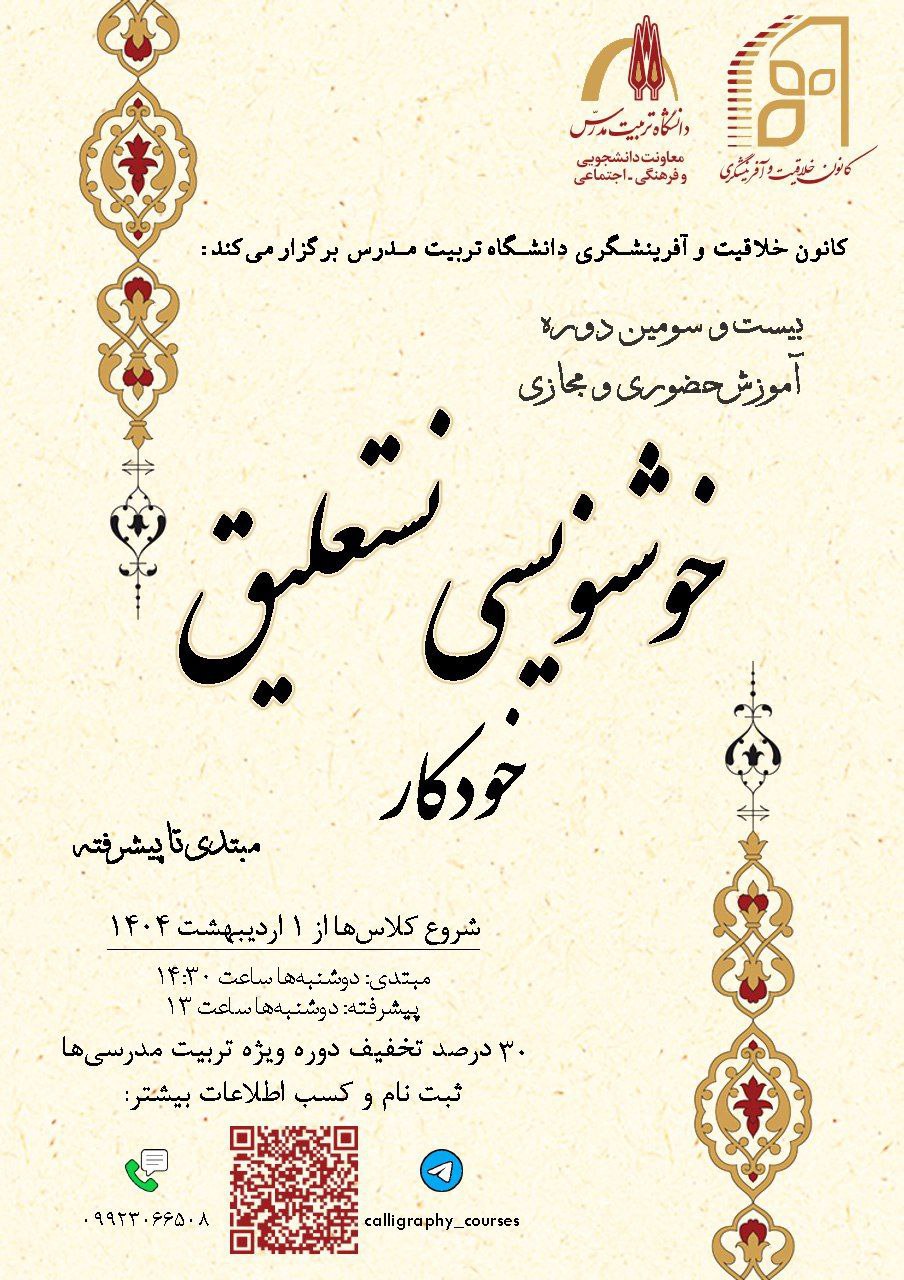 دانشگاه تربیت مدرس
معاونت دانشجویی
و فرهنگی - اجتماعی
کانون خلاقیت و آفرینشگری
کانون خلاقیت و آفرینشگری دانشگاه تربیت مدرس برگزار می‌کند:
بیست و سومین دوره
آموزش حضوری و مجازی
خوشنویسی نستعلیق
خودکار
مبتدی تا پیشرفته
شروع کلاس‌ها از ۱ اردیبهشت ۱۴۰۴
مبتدی: دوشنبه‌ها ساعت ۱۴:۳۰
پیشرفته: دوشنبه‌ها ساعت ۱۳
۳۰ درصد تخفیف دوره ویژه تربیت مدرسی‌ها
ثبت نام و کسب اطلاعات بیشتر:
calligraphy_courses
۰۹۹۲۳۰۶۶۵۰۸